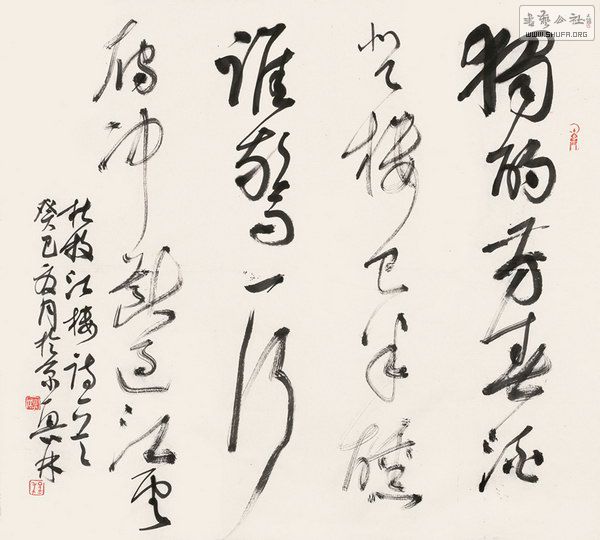 書藝公社
WWW.SHUFA.ORG
獨酌芳春酒
登樓已半醺
誰驚一行
雁冲斷過江雲
杜牧江樓詩一首
癸巳夏月於京